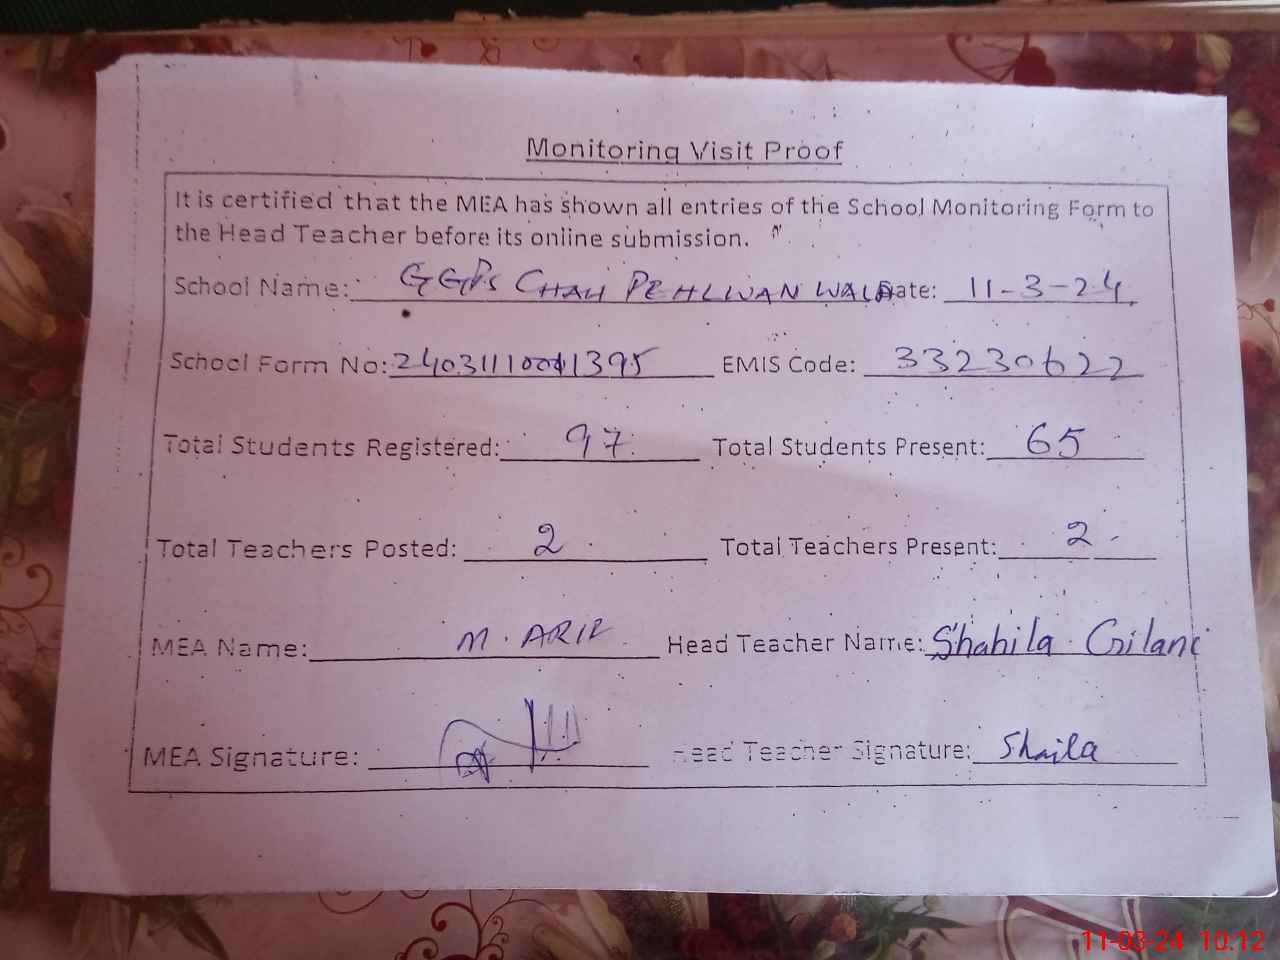 Monitoring Visit Proof
It is certified that the MEA has shown all entries of the School Monitoring Form to
the Head Teacher before its online submission.
School Name: GGPS CHAH PEHLWAN WALA Date: 11-3-24
School Form No: EMIS Code: 33230622
Total Students Registered: 97 Total Students Present: 65
Total Teachers Posted: 2 Total Teachers Present: 2
MEA Name: M. ARIF Head Teacher Name: Shahila Gilani
MEA Signature: Head Teacher Signature: Shaila
11-03-24 10:12